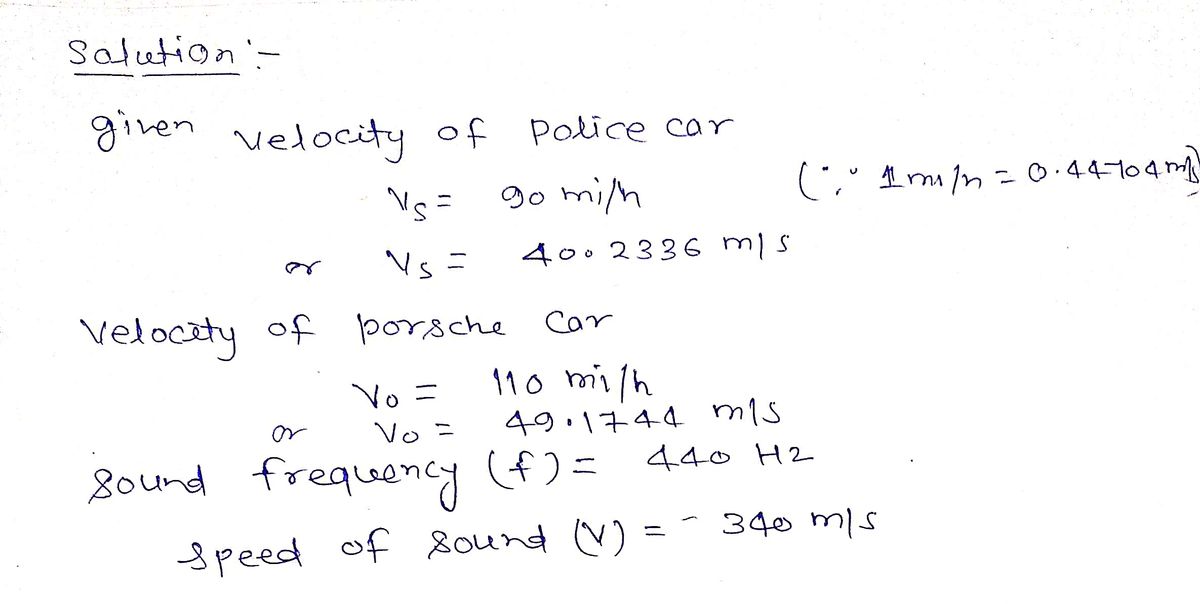 Solution :-
given velocity of police car
Vs = 90 mi/h (∵ 1 mi/h = 0.44704 m/s)
or Vs = 40.2336 m/s
Velocity of porsche car
Vo = 110 mi/h
or Vo = 49.1744 m/s
Sound frequency (f) = 440 Hz
Speed of sound (V) = - 340 m/s